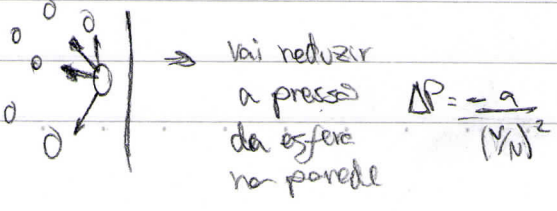 → vai reduzir
a pressão
da esfera
na parede
ΔP = -a/(V/N)²